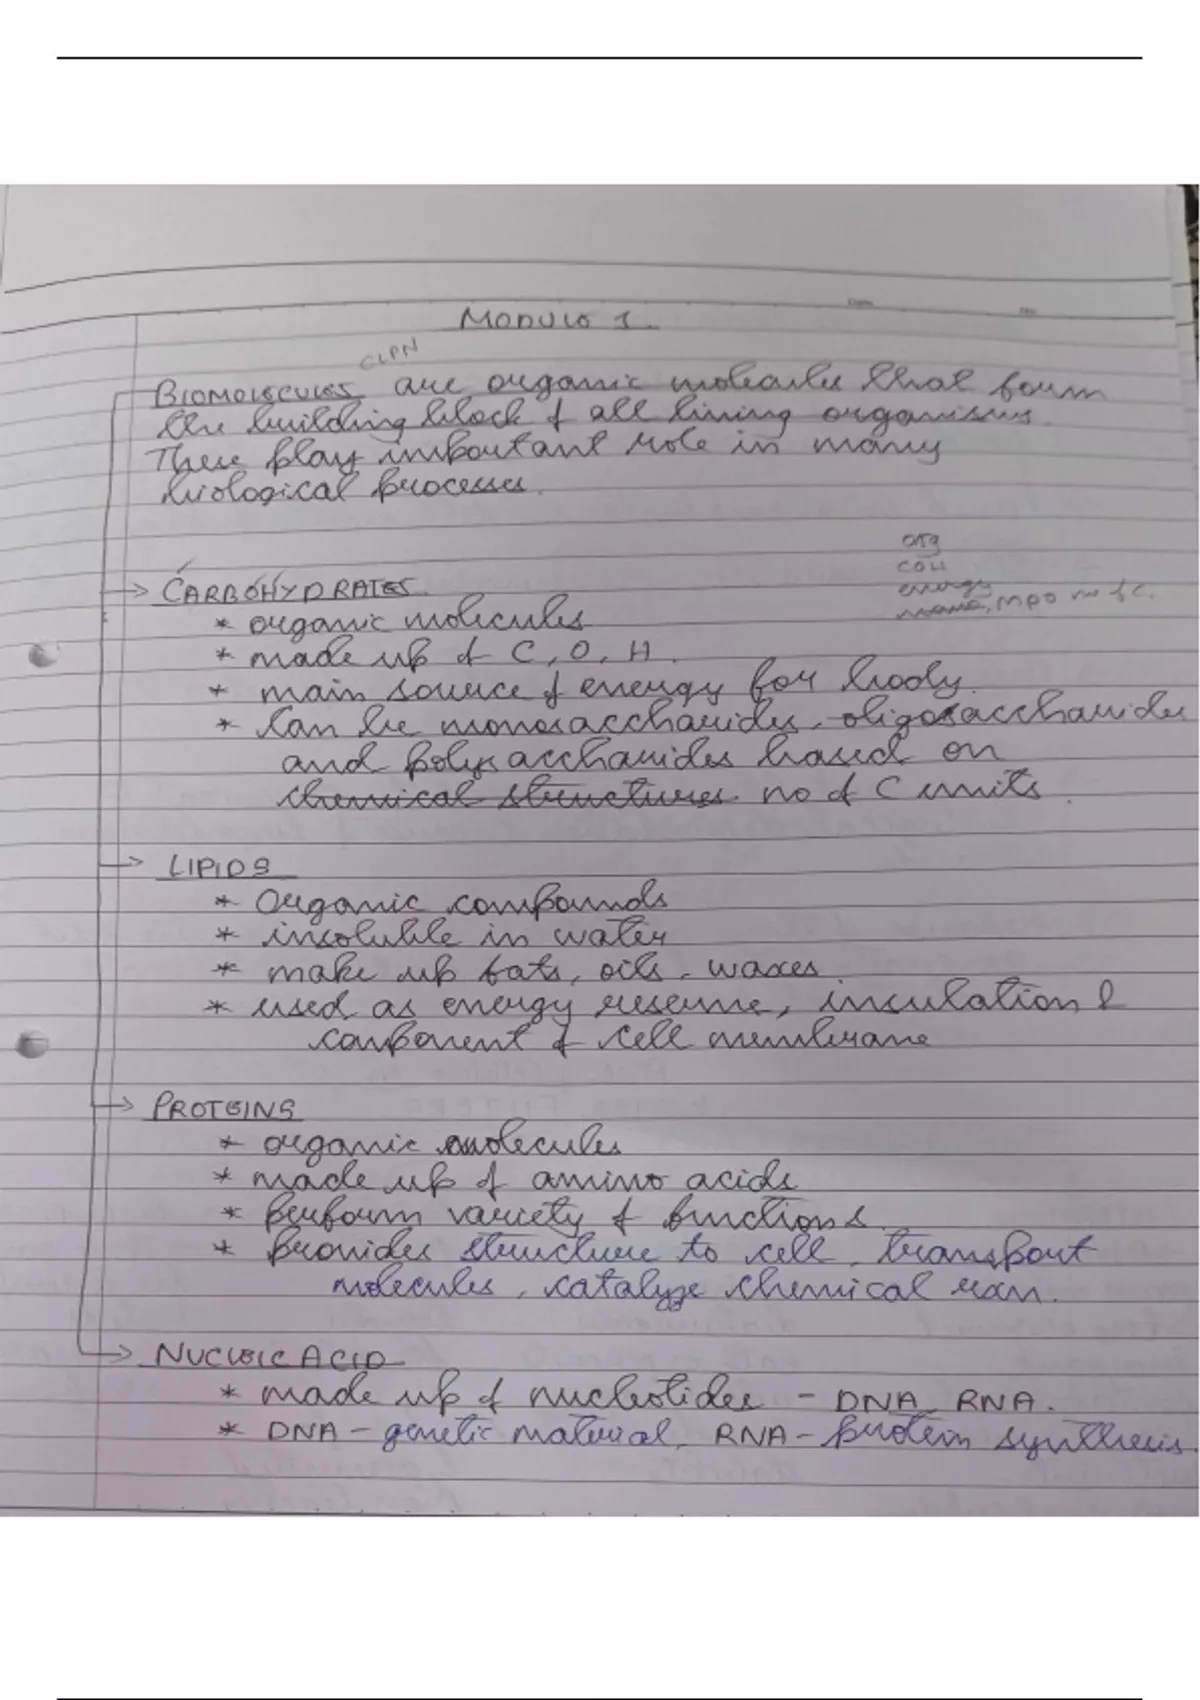 MODULE 1.
CLPN
BIOMOLECULES are organic molecules that form
the building block of all living organisms.
These play important role in many
biological processes.
org
COH
energy
mono, MPO no of C.
CARBOHYDRATES
* organic molecules
* made up of C, O, H.
* main source of energy for body.
* Can be monosaccharides, oligosaccharides
and polysaccharides based on
chemical structures no of C units.
LIPIDS
* Organic compounds
* insoluble in water
* make up fats, oils, waxes
* used as energy reserve, insulation &
component of cell membrane
PROTEINS
* organic molecules
* made up of amino acids
* perform variety of functions.
* provides structure to cell, transport
molecules, catalyze chemical rxn.
NUCLEIC ACID
* made up of nucleotides - DNA, RNA.
* DNA - genetic material, RNA - protein synthesis.